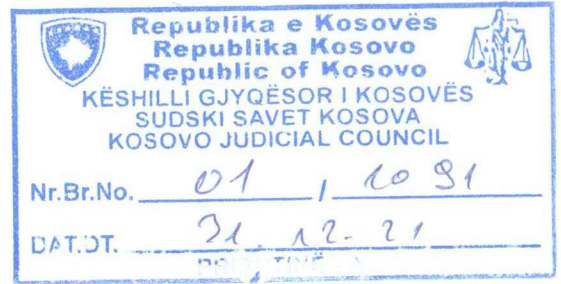 Republika e Kosovës
Republika Kosovo
Republic of Kosovo
KËSHILLI GJYQËSOR I KOSOVËS
SUDSKI SAVET KOSOVA
KOSOVO JUDICIAL COUNCIL
Nr.Br.No. 01 / 1091
DAT.DT. 31.12.21